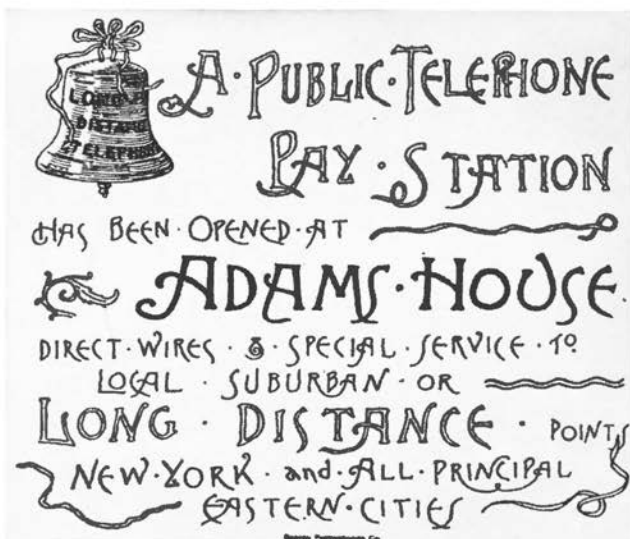 LONG
DISTANCE
TELEPHONE
A · PUBLIC · TELEPHONE
PAY · STATION
HAS BEEN · OPENED · AT
ADAMS · HOUSE.
DIRECT · WIRES · & · SPECIAL · SERVICE · TO
LOCAL · SUBURBAN · OR
LONG · DISTANCE · POINTS
NEW · YORK · and · ALL · PRINCIPAL
EASTERN · CITIES